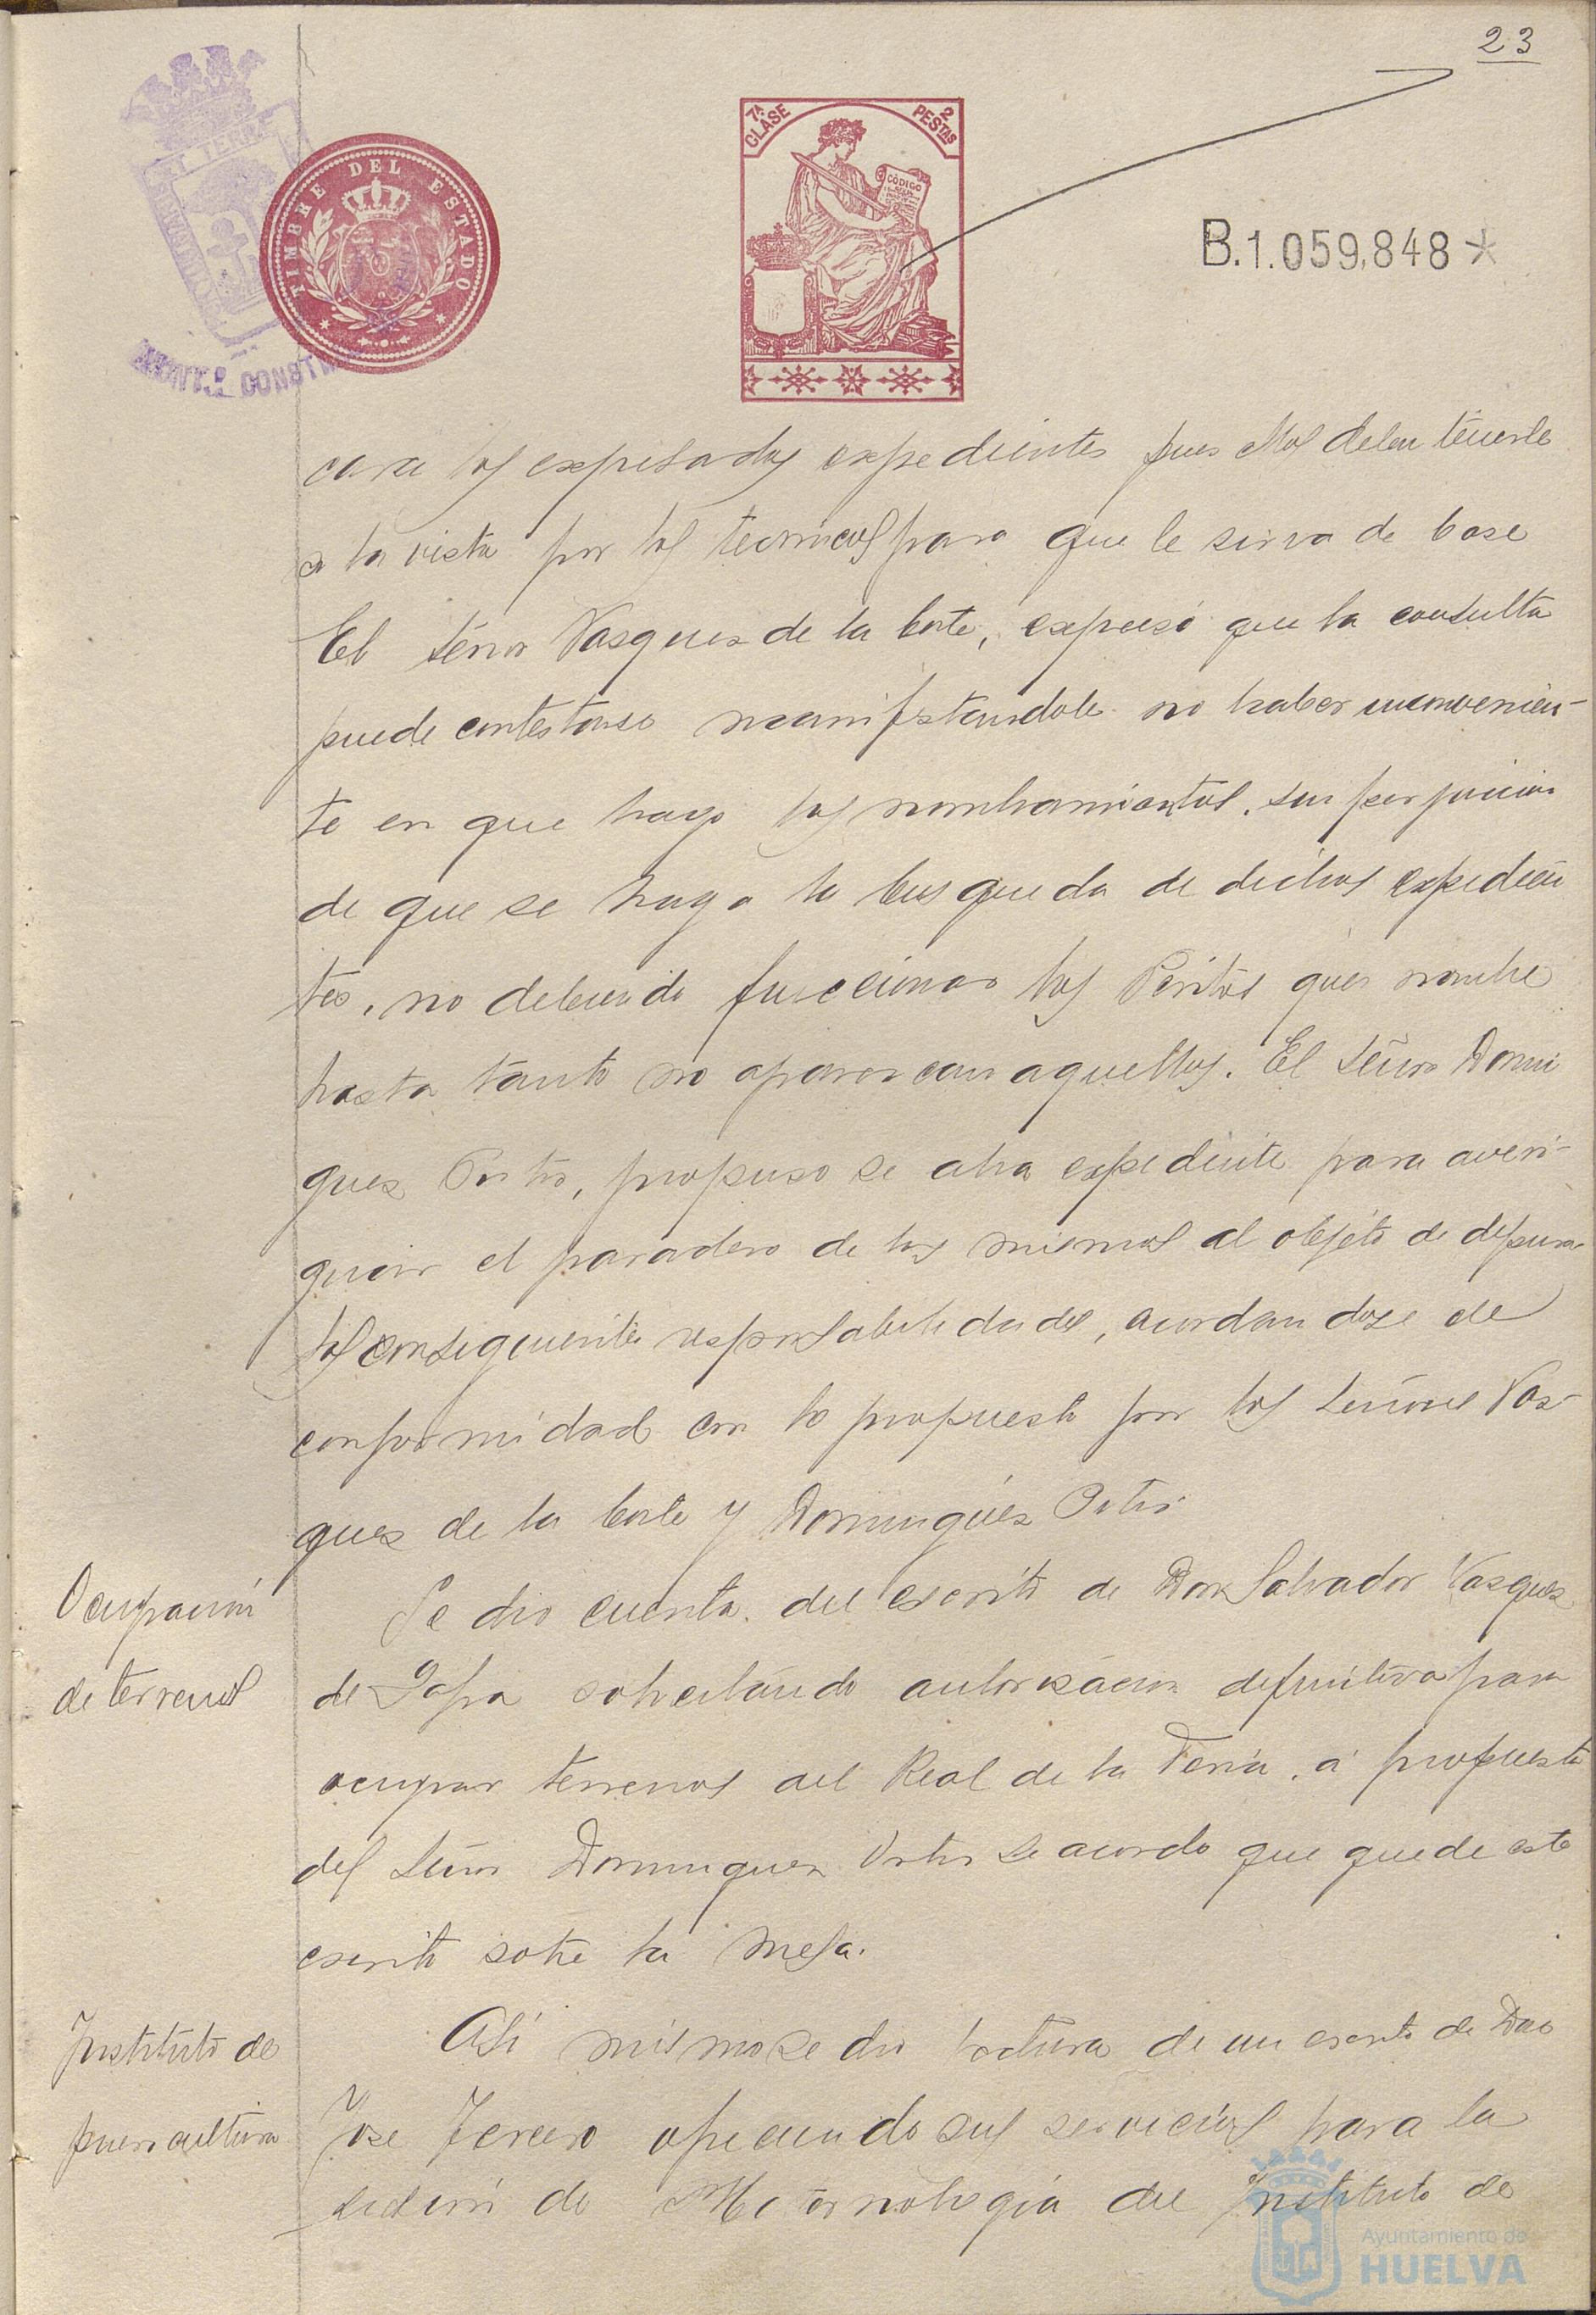 23
TIMBRE DEL ESTADO
7ª CLASE
2 PESTAS
CÓDIGO
B.1.059,848*
CONST
los expresados expedientes pues ellos deben tenerse
a la vista por los tecnicos para que le sirva de base
El señor Vasques de la Corte, expresó que la consulta
puede contestarse manifestandole no haber inconvenien-
te en que haga los nombramientos, sin perjuicio
de que se haga la busqueda de dichos expedien
tes, no debiendo funcionar los Peritos que nombre
hasta tanto no aparezcan aquellos. El señor Domin
gues Ortis, propuso se abra expediente para averi-
guar el paradero de los mismos al objeto de depurar
las consiguientes responsabilidades, acordandose de
conformidad con lo propuesto por los señores Vas-
ques de la Corte y Dominguez Ortis.
Ocupación
de terrenos
Se dio cuenta del escrito de Don Salvador Vasques
de Zafra solicitando autorisacion definitiva para
ocupar terrenos del Real de la Feria, á propuesta
del señor Dominguez Ortis se acordo que quede este
escrito sobre la mesa.
Instituto de
puericultura
Asi mismo se dio lectura de un escrito de Don
Jose Tercero ofreciendo sus servicios para la
sección de Maternologia del Instituto de
Ayuntamiento de
HUELVA